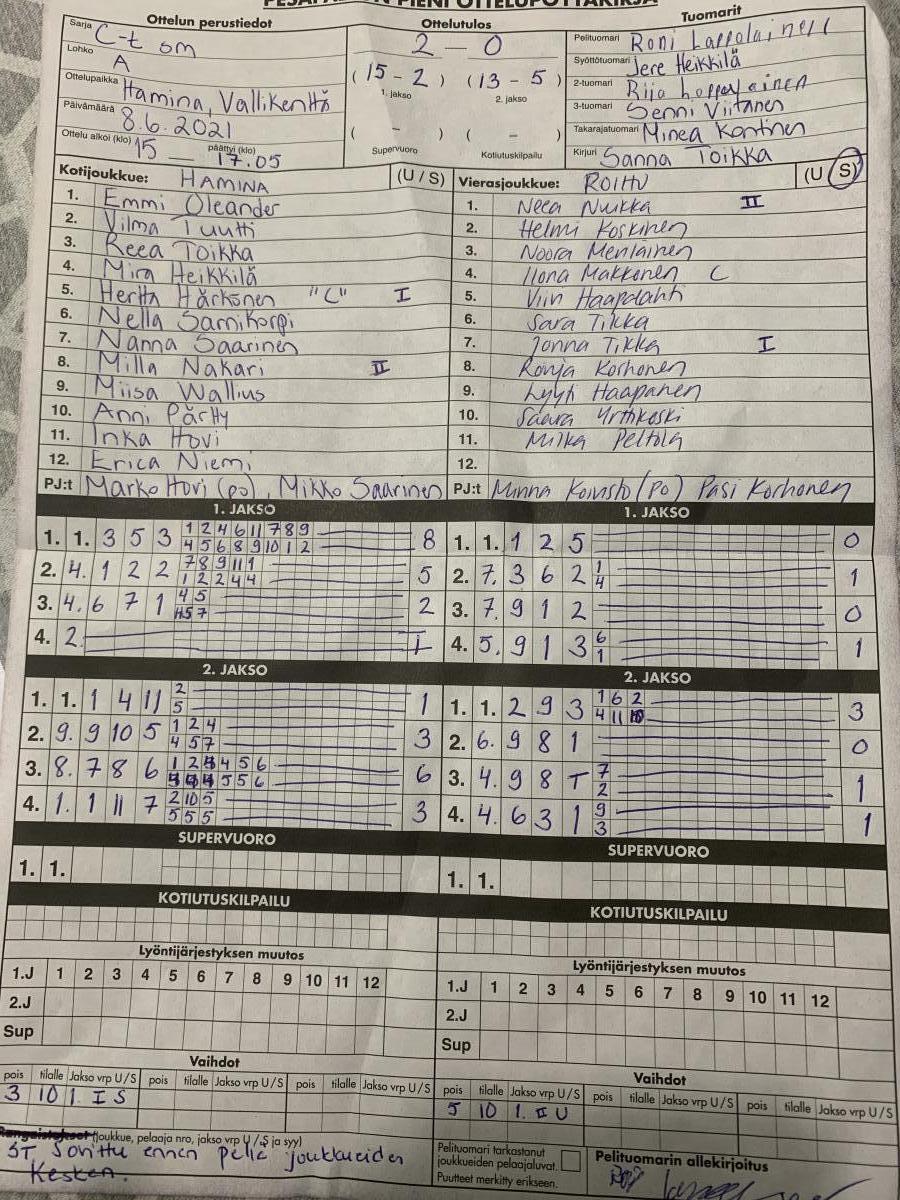 PESÄPALLON PIENI OTTELUPÖYTÄKIRJA
Ottelun perustiedot
Sarja C-t sm
Lohko A
Ottelupaikka Hamina, Vallikenttä
Päivämäärä 8.6.2021
Ottelu alkoi (klo) 15 — päättyi (klo) 17.05
Ottelutulos
2 — 0
(15 - 2) (13 - 5)
1. jakso 2. jakso
( - ) ( - )
Supervuoro Kotiutuskilpailu
Tuomarit
Pelituomari Roni
Syöttötuomari Jere Heikkilä
2-tuomari
3-tuomari Senni Viitanen
Takarajatuomari Minea Kontinen
Kirjuri Sanna Toikka
Kotijoukkue: HAMINA (U / S)
1. Emmi Oleander
2. Vilma Tuutti
3. Reea Toikka
4. Mira Heikkilä
5. Hertta Härkönen "C" I
6. Nella Sarnikorpi
7. Nanna Saarinen
8. Milla Nakari II
9. Miisa Wallius
10. Anni Pärtty
11. Inka Hovi
12. Erica Niemi
PJ:t Marko Hovi (po), Mikko Saarinen
Vierasjoukkue: ROIHU (U / S)
1. Neea Nuikka II
2. Helmi Koskinen
3. Noora
4. Ilona Makkonen C
5. Viivi Haapalahti
6. Sara Tikka
7. Jonna Tikka I
8. Ronja Korhonen
9. Lyyti Haapanen
10. Saara
11. Milka Peltola
12.
PJ:t Minna (po) Pasi Korhonen
1. JAKSO
1. 1. 3 5 3 1 2 4 6 11 7 8 9 8
4 5 6 8 9 10 1 2
2. 4. 1 2 2 7 8 9 11 1 5
1 2 2 4 4
3. 4. 6 7 1 4 5 2
5 7
4. 2.
2. JAKSO
1. 1. 1 4 11 2 1
5
2. 9. 9 10 5 1 2 4 3
4 5 7
3. 8. 7 8 6 1 2 4 5 6 6
5 5 6
4. 1. 1 11 7 2 10 5 3
5 5 5
SUPERVUORO
1. 1.
KOTIUTUSKILPAILU
Lyöntijärjestyksen muutos
1.J 1 2 3 4 5 6 7 8 9 10 11 12
2.J
Sup
Vaihdot
pois tilalle Jakso vrp U / S pois tilalle Jakso vrp U / S pois tilalle Jakso vrp U / S
3 10 1. I S
1. JAKSO
1. 1. 1 2 5 0
2. 7. 3 6 2 1 1
4
3. 7. 9 1 2 0
4. 5. 9 1 3 6 1
1
2. JAKSO
1. 1. 2 9 3 1 6 2 3
4 11 10
2. 6. 9 8 1 0
3. 4. 9 8 T 7 1
2
4. 4. 6 3 1 9 1
3
SUPERVUORO
1. 1.
KOTIUTUSKILPAILU
Lyöntijärjestyksen muutos
1.J 1 2 3 4 5 6 7 8 9 10 11 12
2.J
Sup
Vaihdot
pois tilalle Jakso vrp U / S pois tilalle Jakso vrp U / S pois tilalle Jakso vrp U / S
5 10 1. II U
Rangaistukset (joukkue, pelaaja nro, jakso vrp U / S ja syy)
3T Sovittu ennen peliä joukkueiden
kesken.
Pelituomari tarkastanut
joukkueiden pelaajaluvat.
Puutteet merkitty erikseen.
Pelituomarin allekirjoitus